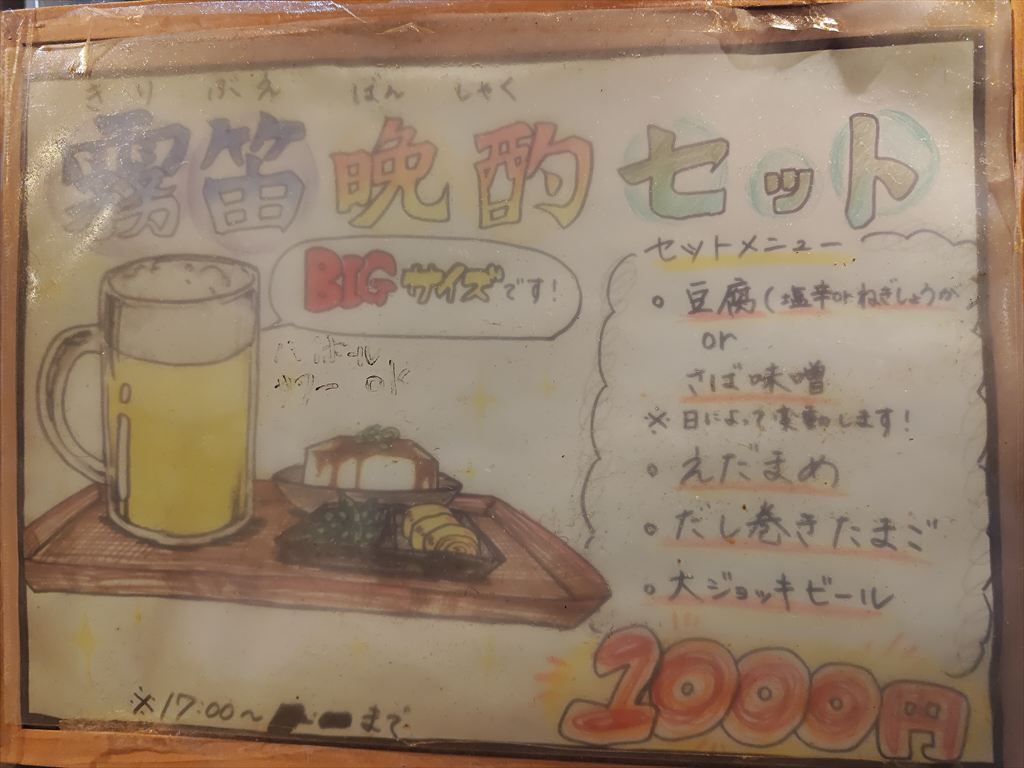 きりぶえ ばんしゃく
霧笛晩酌セット
BIGサイズです!
ハイボール
サワー OK
セットメニュー
豆腐(塩辛orねぎしょうが
or
さば味噌
※日によって変動します!
えだまめ
だし巻きたまご
大ジョッキビール
1000円
※17:00~ まで